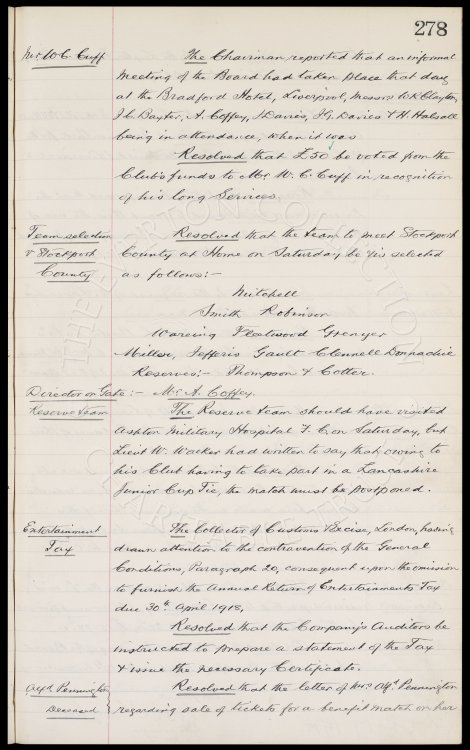 278
Mr W.C. Cuff
The Chairman reported that an informal
meeting of the Board had taken place that day
at the Bradford Hotel, Liverpool, Messrs W.R. Clayton,
J.C. Baxter, A. Coffey, J Davies, J.G. Davies & H. Halsall
being in attendance, when it was
Resolved that £50 be voted from the
Club's funds to Mr. W. C. Cuff in recognition
of his long services.
Team selection
v Stockport
County
Resolved that the team to meet Stockport
County at Home on Saturday be selected
as follows:-
Mitchell
Smith Robinson
Wareing Fleetwood Grenyer
Miller, Jefferis Gault Clennell Donnachie
Reserves:- Thompson & Cotter.
Director on Gate:- Mr A. Coffey.
Reserve team
The Reserve team should have visited
Ashton Military Hospital F.C on Saturday, but
Lieut W. Walker had written to say that owing to
his Club having to take part in a Lancashire
Junior Cup Tie, the match must be postponed.
Entertainment
Tax
The Collector of Customs & Excise, London, having
drawn attention to the contravention of the General
Conditions, Paragraph 20, consequent upon the omission
to furnish the annual Return of Entertainments Tax
due 30th April 1918,
Resolved that the Company's Auditors be
instructed to prepare a statement of the Tax
& issue the necessary Certificate.
Alfd Pennington
Deceased
Resolved that the letter of Mrs Alfd. Pennington
regarding sale of tickets for a benefit match on her
THE EVERTON COLLECTION
CHARITABLE TRUST